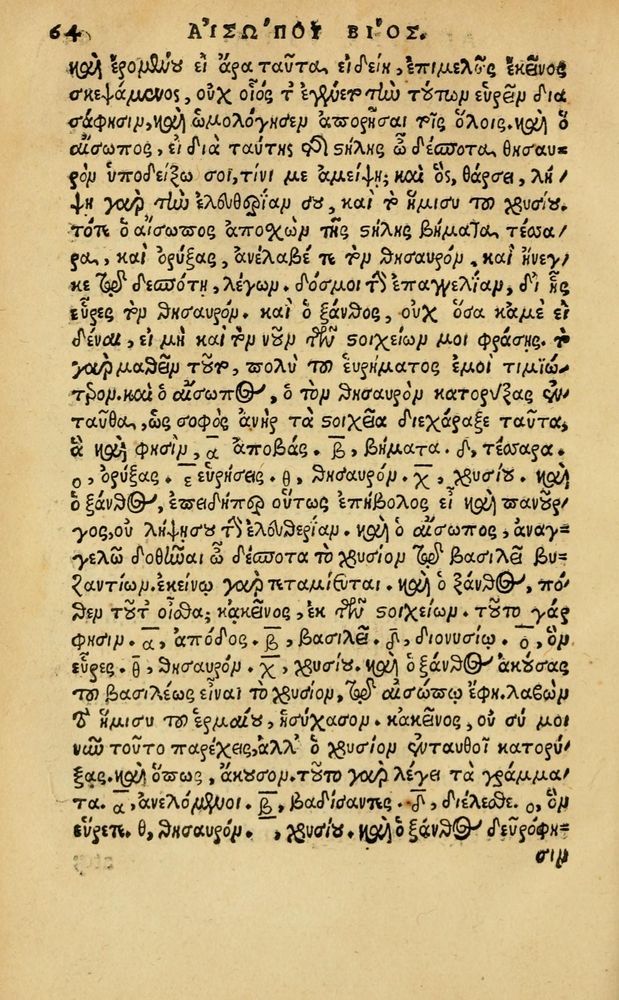 64 ΑΙΣΩΠΟΥ ΒΙΟΣ.
καὶ ἐρομένου εἰ ἄρα ταῦτα εἰδείη, ἐπιμελῶς ἐκεῖνος
σκεψάμενος, οὐχ οἷός τ' ἐγένετο τὴν τούτων εὑρεῖν δια
σάφησιν, καὶ ὡμολόγησεν ἀπορῆσαι τοῖς ὅλοις. καὶ ὁ
αἴσωπος, εἰ διὰ ταύτης τῆς στήλης ὦ δέσποτα, θησαυ=
ρὸν ὑποδείξω σοι, τίνι με ἀμείψῃ; καὶ ὃς, θάρσει, λή/
ψῃ γὰρ τὴν ἐλευθερίαν σου, καὶ τὸ ἥμισυ τοῦ χρυσίου.
τότε ὁ αἴσωπος ἀποχὼν τῆς στήλης βήματα τέσσα/
ρα, καὶ ὀρύξας, ἀνέλαβέ τε τὸν θησαυρόν, καὶ ἤνεγ/
κε τῷ δεσπότῃ, λέγων. δός μοι τὴν ἐπαγγελίαν, δι' ἧς
εὗρες τὸν θησαυρόν. καὶ ὁ ξάνθος, οὐχ ὅσα κἀμὲ εἰ
δέναι, εἰ μὴ καὶ τὸν νοῦν τῶν στοιχείων μοι φράσῃς. τὸ
γὰρ μαθεῖν τοῦτο, πολὺ τοῦ εὑρήματος ἐμοὶ τιμιώ/
τερον. καὶ ὁ αἴσωπος, ὁ τὸν θησαυρὸν κατορύξας ἐν/
ταῦθα, ὡς σοφὸς ἀνὴρ τὰ στοιχεῖα διεχάραξε ταῦτα,
ἃ καὶ φησὶν, α ἀποβάς. β, βήματα. δ, τέσσαρα.
ο, ὀρύξας. ε εὑρήσεις. θ, θησαυρόν. χ, χρυσίου. καὶ
ὁ ξάνθος, ἐπειδήπερ οὕτως ἐπήβολος εἶ καὶ πανοῦρ/
γος, οὐ λήψῃ σου τὴν ἐλευθερίαν. καὶ ὁ αἴσωπος, ἀναγ/
γελῶ δοθῆναι ὦ δέσποτα τὸ χρυσίον τῷ βασιλεῖ βυ=
ζαντίων. ἐκείνῳ γὰρ τεταμίευται. καὶ ὁ ξάνθος, πό/
θεν τοῦτ' οἶσθα; κἀκεῖνος, ἐκ τῶν στοιχείων. τοῦτο γάρ
φησιν. α, ἀπόδος. β, βασιλεῖ. δ, διονυσίῳ. ο, ὃν
εὗρες. θ, θησαυρόν. χ, χρυσίου. καὶ ὁ ξάνθος ἀκούσας
τοῦ βασιλέως εἶναι τὸ χρυσίον, τῷ αἰσώπῳ ἔφη. λαβὼν
τὸ ἥμισυ τοῦ ἑρμαίου, ἡσύχασον. κἀκεῖνος, οὐ σύ μοι
νῦν τοῦτο παρέχεις, ἀλλ' ὁ χρυσίον ἐνταυθοῖ κατορύ/
ξας. καὶ ὅπως, ἄκουσον. τοῦτο γὰρ λέγει τὰ γράμμα/
τα. α, ἀνελόμενοι. β, βαδίσαντες. δ, διέλεσθε. ο, ὃν
εὕρετε. θ, θησαυρόν. , χρυσίου. καὶ ὁ ξάνθος δεῦρό φη=
σιν